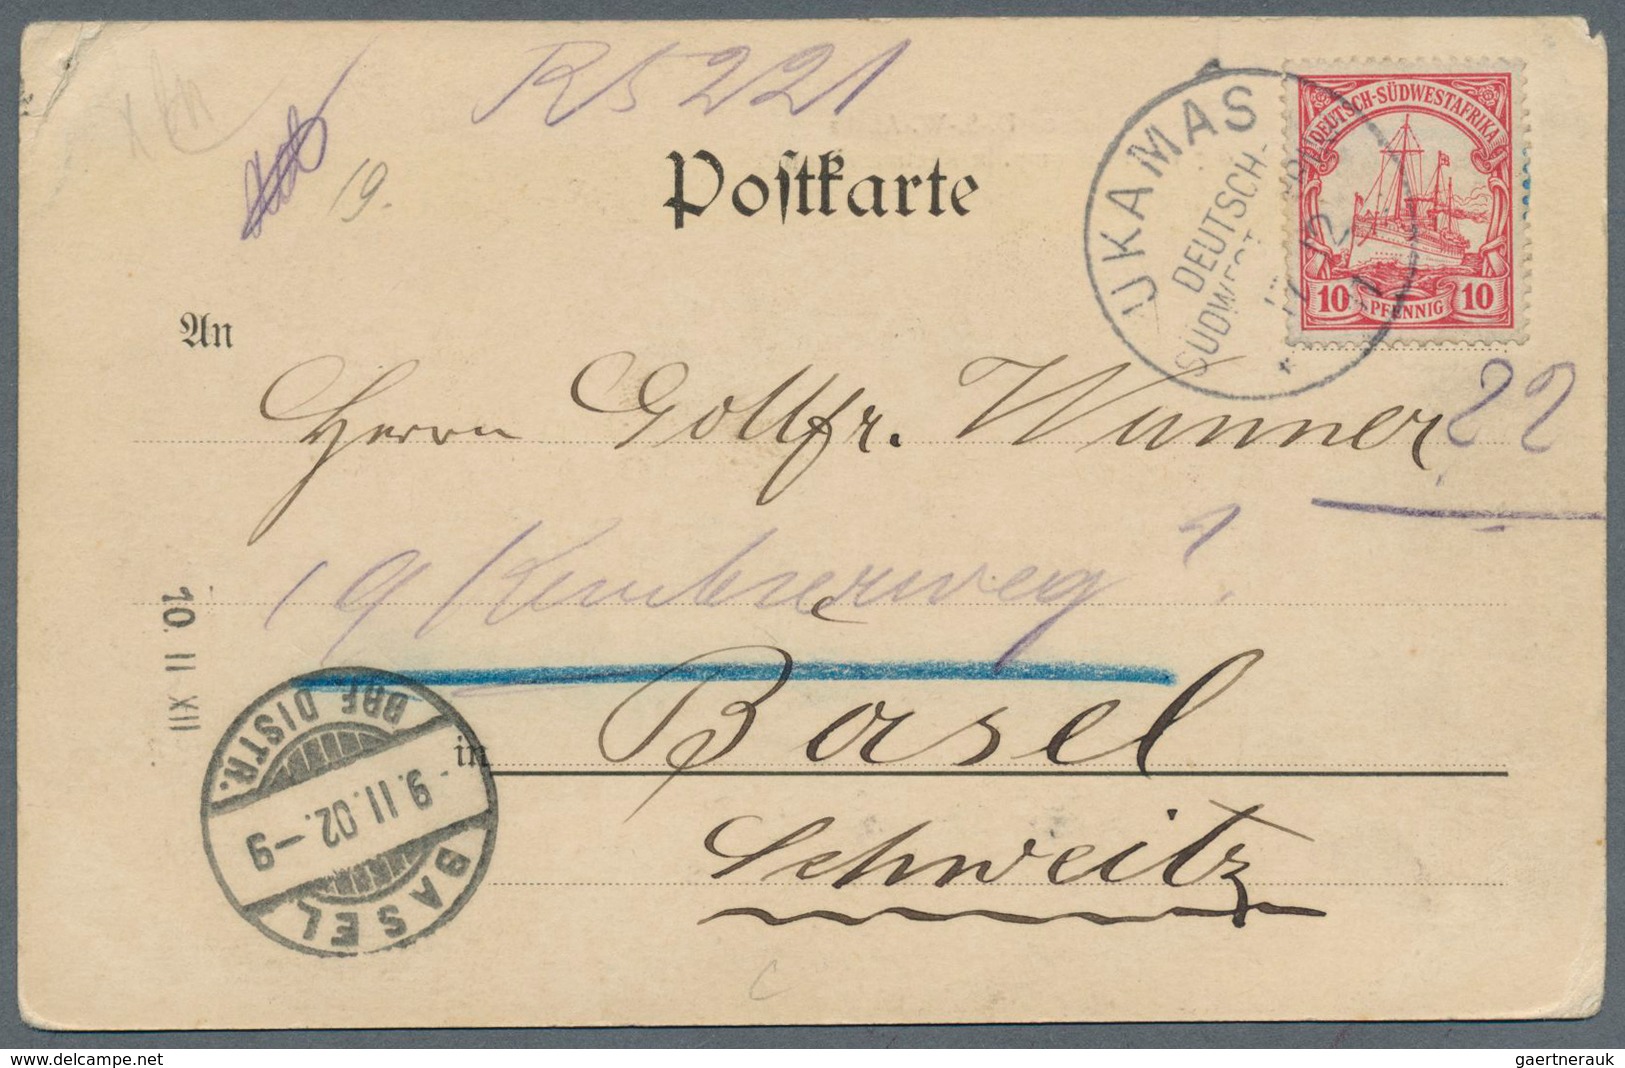 R5221
19.
Postkarte
UKAMAS
DEUTSCH-
SÜDWEST
DEUTSCH-SÜDWESTAFRIKA
10 PFENNIG 10
An
Herrn Gottfr. Wunner
22
19
Basel
in
Schweitz
10. II XII
BASEL
BRF. DISTR.
-9.II.02.-9
www.delcampe.net
gaertnerauk